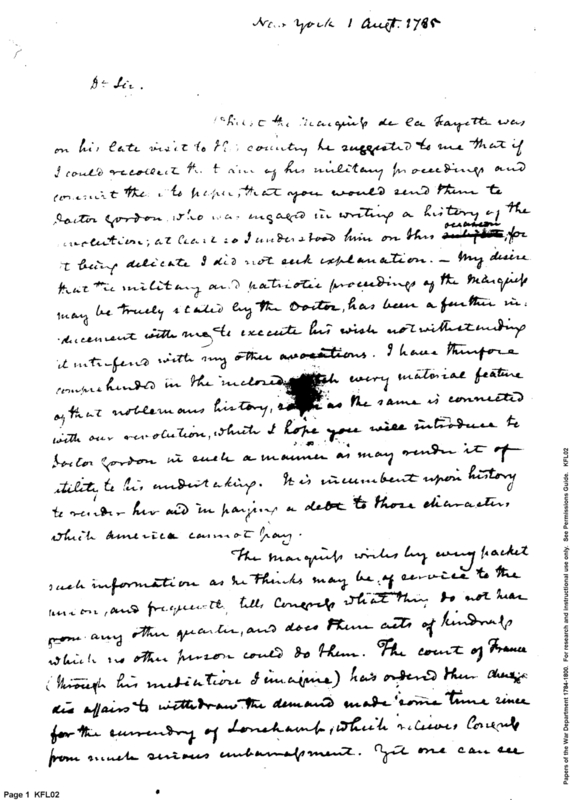 New York 1 Augt. 1785
Dr Sir.
Whilst the Marquiss de la Fayette was
on his late visit to this country he suggested to me that if
I could recollect the of his military proceedings and
commit the to paper, that you would send them to
Doctor Gordon who was engaged in writing a history of the
revolution; at least so I understood him on this occasion, for
it being delicate I did not seek explanation. — My desire
that the military and patriotic proceedings of the Marquiss
may be truely stated by the Doctor, has been a further in-
ducement with me, to execute his wish notwithstanding
it interfered with my other avocations. I have therefore
comprehended in the inclosed every material feature
of that noblemans history, as the same is connected
with our revolution, which I hope you will introduce to
Doctor Gordon in such a manner as may render it of
utility to his undertaking. It is incumbent upon history
to render her aid in paying a debt to those characters
which America cannot pay.
The Marquiss writes by every packet
such information as he thinks may be of service to the
union, and frequently tells Congress what they do not hear
from any other quarter, and does them acts of kindness
which no other person could do them. The court of France
(through his mediation I imagine) has ordered their chargé
des affairs to withdraw the demand made some time since
for the surrendry of Lonchamp, which relieves Congress
from much serious embarrassment. Yet one can see
Page 1 KFL02
Papers of the War Department 1784-1800. For research and instructional use only. See Permissions Guide. KFL02